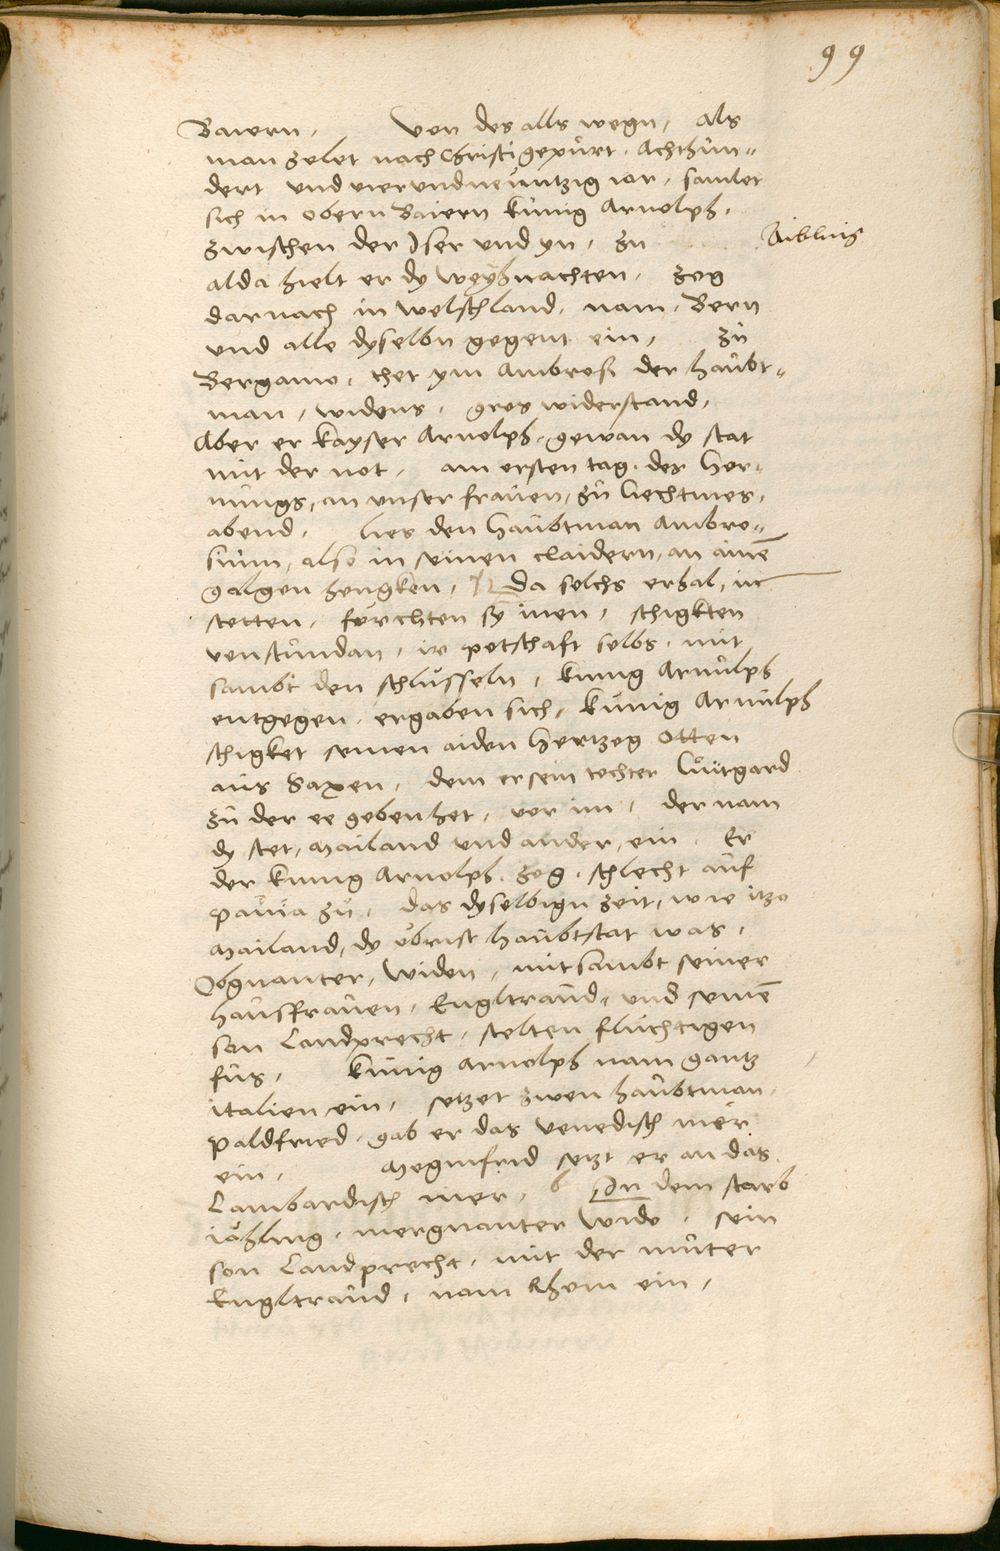 99
Baiern, von des alls wegn, als
man zelet nach Christi gepůrt. Achthun-
dert und vierundneůntzig iar, samlet
sich in obern Baiern kůnig Arnolph,
zwischen der Iser und yn, zu
Aibling
alda hielt er dy weyhnachten, zog
darnach in welschland, nam, Bern
und alle dyselbn gegent ein, zů
Bergamo, thet ym Ambrosi der haůbt-
man, widens, gros widerstand,
Aber er kayser Arnolph, gewan dy stat
mit der not, am ersten tag, des hor-
nungs, an unser fraůen, zů liechtmes,
abend, lies den haůbtman Ambro-
sium, also in seinen claidern, an ainē
galgen hengken, Da solchs erhal, in
stetten, forchten sy inen, schigkten
von stůndan, ir potschaft selbs, mit
sambt den schlůsseln, kunig Arnůlph
entgegen, ergaben sich, kůnig Arnůlph
schigket seinen aiden hertzog Otten
aůs Saxen, dem er sein tochter Luitgard
zů der ee geben het, vor im, der nam
dy stet, Mailand und ander, ein. Er
der kunig Arnolph, zog, schlecht aůf
pavia zů, das dyselbign zeit, wie itzo
Mailand, dy obrist haůbtstat was,
Obgnanter, widen, mit sambt seiner
haůsfraůen, Engltraůd, und seinē
son Landprecht, stelten fluchtigen
fůs, kůnig Arnolph nam gantz
italien ein, setzet zwen haůbtman,
paldfried, gab er das venedisch mer
ein, Meginfrid setzt er an das
Lambardisch mer, In dem starb
iåhling, mergnanter wido, sein
son Landprecht, mit der můter
Engltraůd, nam Rhom ein,